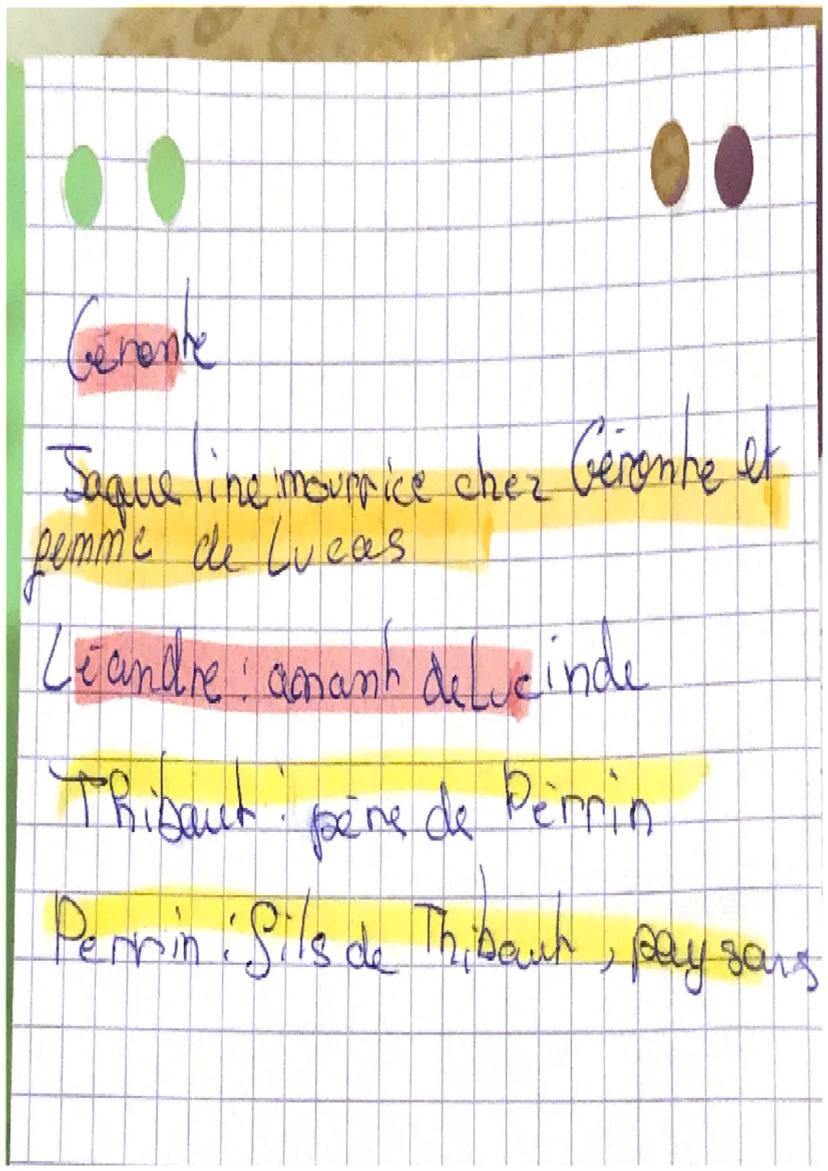 Géronte
Jaqueline: nourrice chez Géronte et
femme de Lucas
Léandre : amant de Lucinde
Thibaut : père de Perrin
Perrin : fils de Thibaut, paysans